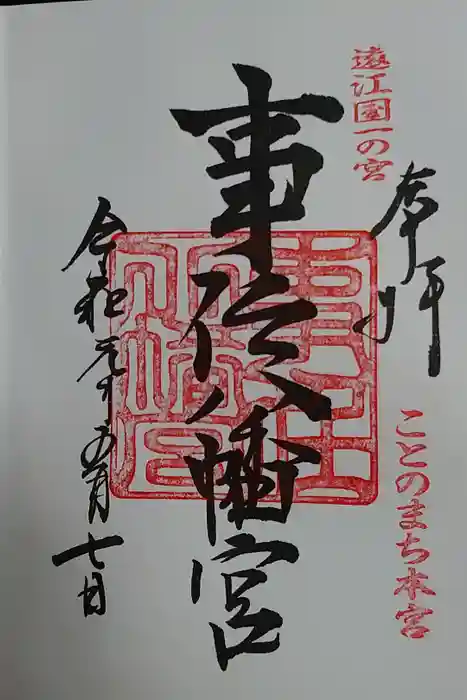 遠江國一の宮
奉拝
ことのまち本宮
事任八幡宮
事任八幡宮
令和元年五月七日